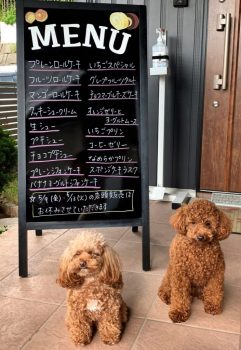 MENU
プレーンロールケーキ
フルーツロールケーキ
マンゴーロールケーキ
クッキーシュークリーム
生シュー
プチシュー
チョコプチシュー
プレーンシフォンケーキ
バナナヨーグルトシフォンケーキ
いちごスペシャル
グレープフルーツケーキ
チョコマーブルチーズケーキ
オレンジゼリーと
ヨーグルトムース
いちごプリン
コーヒーゼリー
なめらかプリン
スポンジケーキラスク
の店頭販売は
お休みさせていただきます